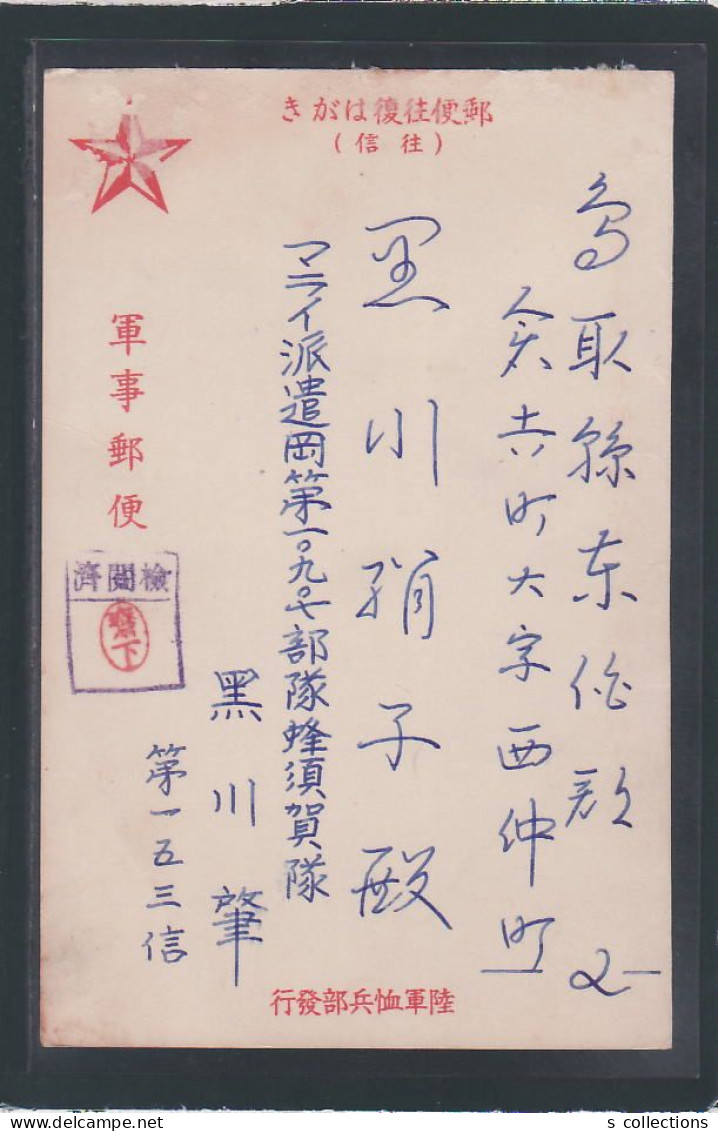 郵便往復はがき
(往信)
鳥取縣東伯郡
倉吉町大字西仲町
黒川絹子殿
マライ派遣岡第一〇九〇七部隊蜂須賀隊
黑川肇
第一五三信
軍事郵便
檢閲濟
下
陸軍恤兵部發行
s collections